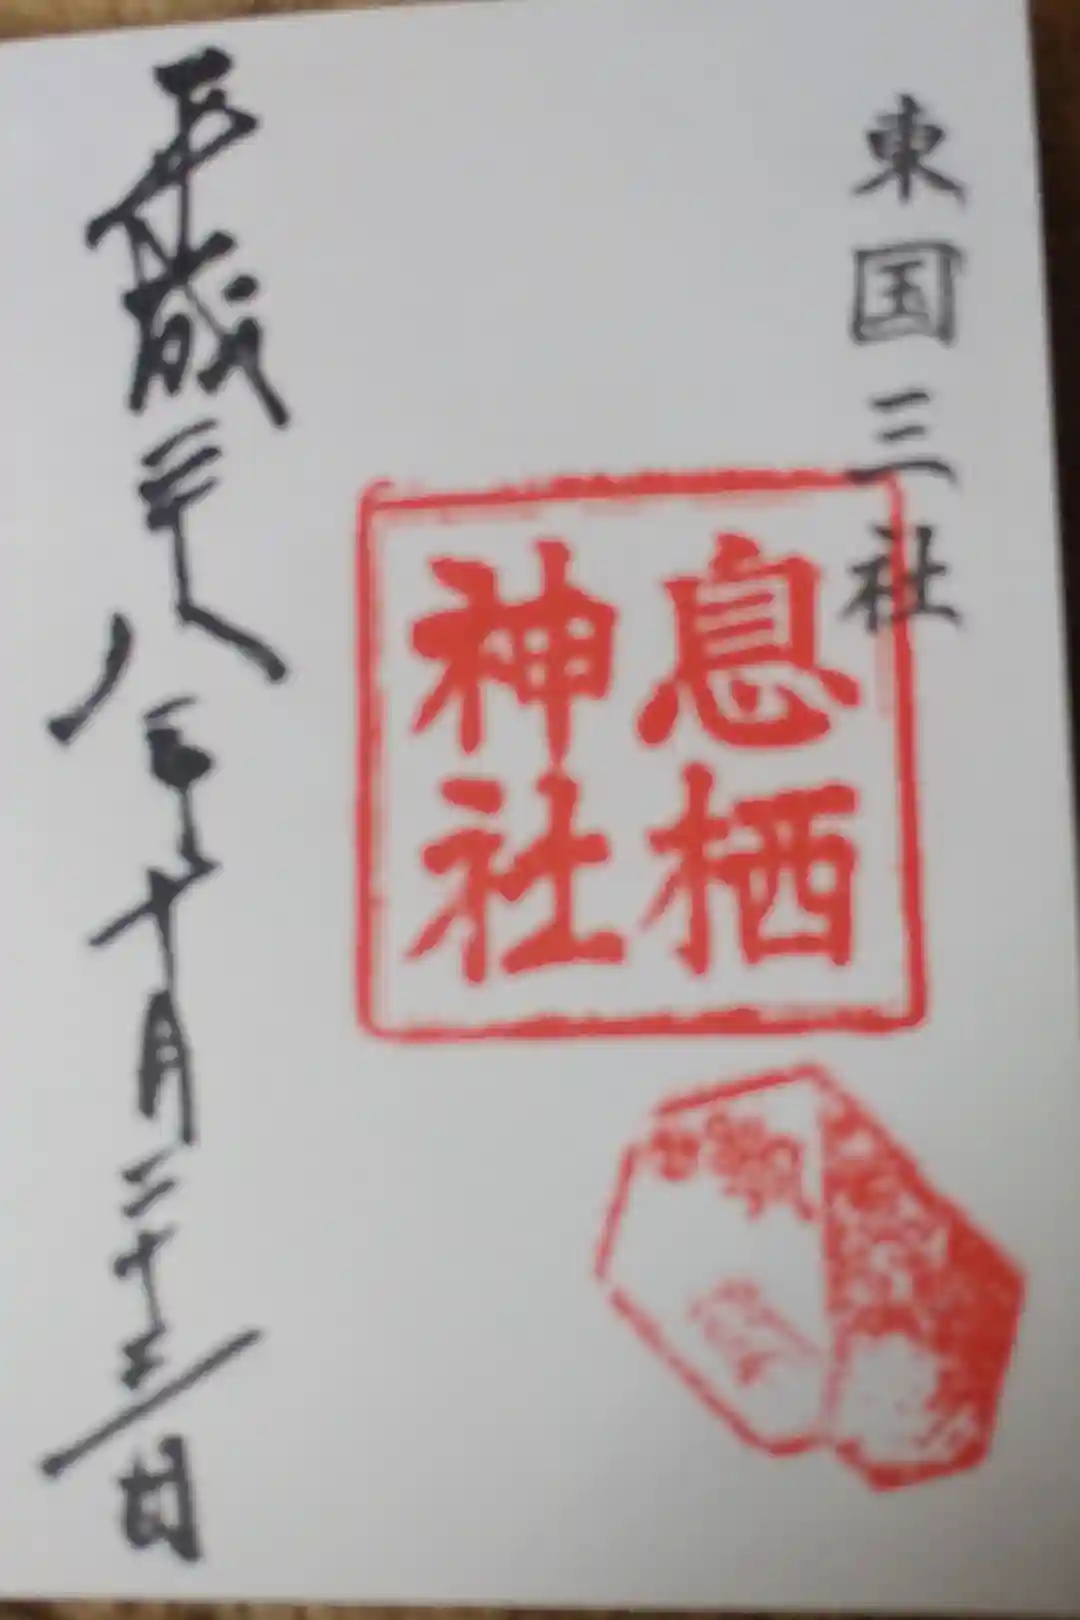 東国三社
息栖
神社
平成二十八年十月二十三日